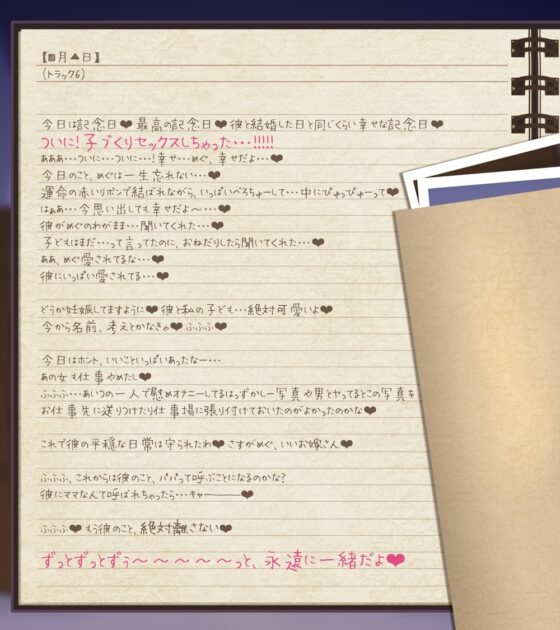 【■月▲日】
(トラック6)
今日は記念日❤最高の記念日❤彼と結婚した日と同じくらい幸せな記念日❤
ついに!子づくりセックスしちゃった・・・!!!!!
あああ・・・ついに・・・ついに・・・!幸せ・・・めぐ、幸せだよ・・・❤
今日のこと、めぐは一生忘れない・・・❤
運命の赤いリボンで結ばれながら、いっぱいべろちゅーして・・・中にぴゅっぴゅーって❤
はぁあ・・・今思い出しても幸せだよ～・・・❤
彼がめぐのわがまま・・・聞いてくれた・・・❤
子どもはまだ・・・って言ってたのに、おねだりしたら聞いてくれた・・・❤
ああ、めぐ愛されてるな・・・❤
彼にいっぱい愛されてる・・・❤
どうか妊娠してますように❤彼と私の子ども・・・絶対可愛いよ❤
今から名前、考えとかなきゃ❤ふふふ❤
今日はホント、いいこといっぱいあったなー・・・
あの女も仕事やめたし❤
ふふふ・・・あいつの一人で慰めオナニーしてるはっずかしー写真や男とヤってるとこの写真を
お仕事先に送りつけたり仕事場に張り付けておいたのがよかったのかな❤
これで彼の平穏な日常は守られたわ❤さすがめぐ、いいお嫁さん❤
ふふふ、これからは彼のこと、パパって呼ぶことになるのかな?
彼にママなんて呼ばれちゃったら・・・キャー――❤
ふふふ❤もう彼のこと、絶対離さない❤
ずっとずっとずぅ～～～～～っと、永遠に一緒だよ❤